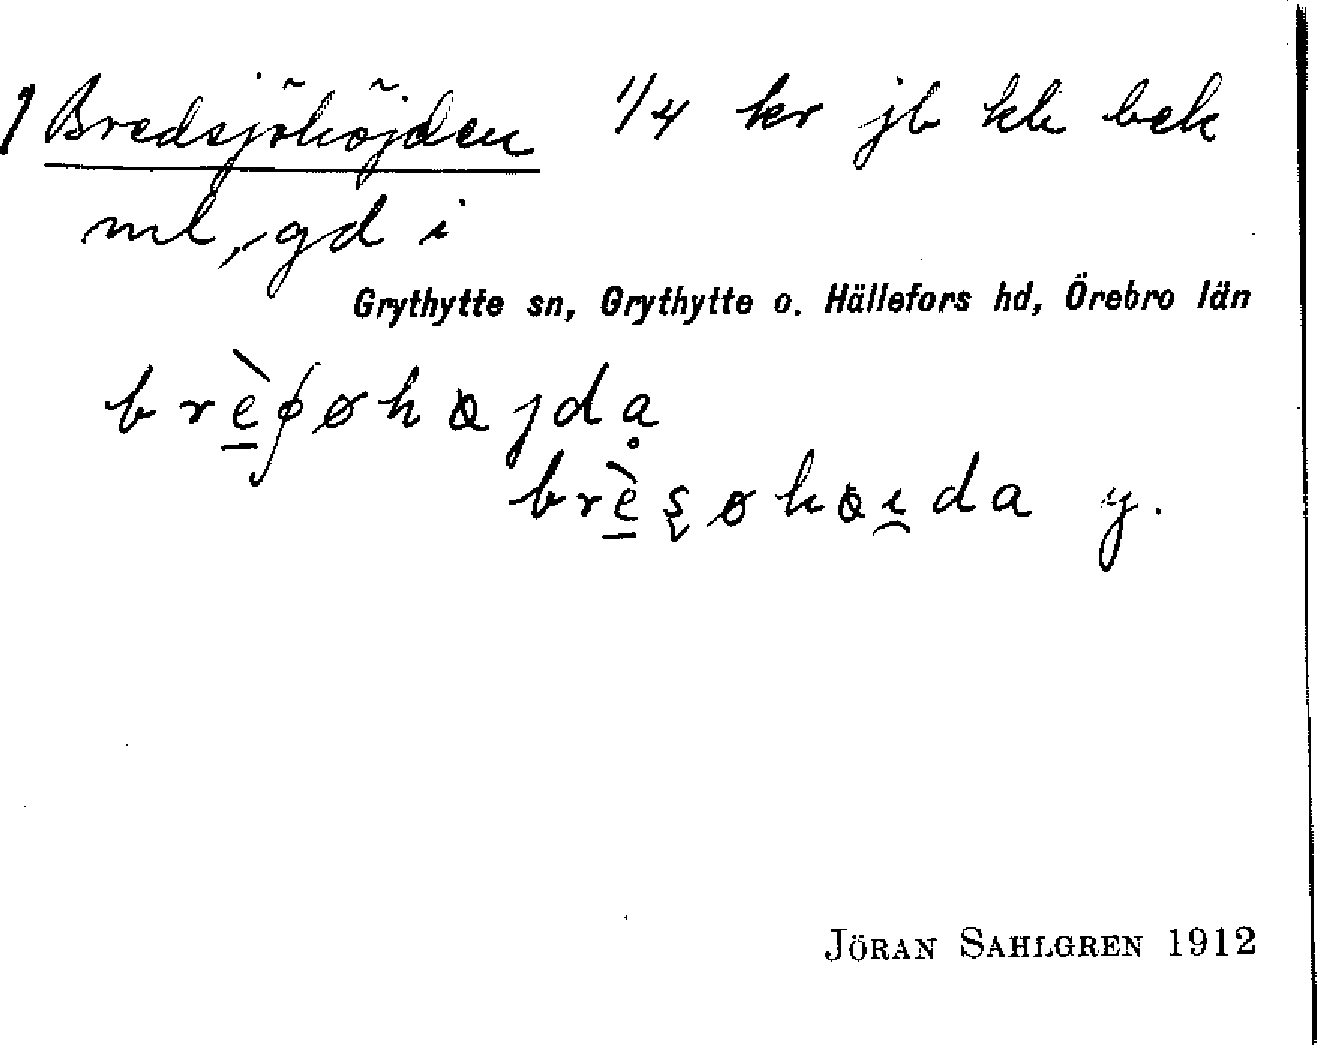 1 Bredsjöhöjden 1/4 kr jb kh bek
ml, gd i
Grythytte sn, Grythytte o. Hällefors hd, Örebro län
y.
JÖRAN SAHLGREN 1912